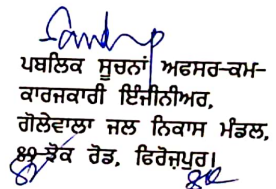 ਪਬਲਿਕ ਸੂਚਨਾਂ ਅਫਸਰ-ਕਮ-
ਕਾਰਜਕਾਰੀ ਇੰਜੀਨੀਅਰ,
ਗੋਲੇਵਾਲਾ ਜਲ ਨਿਕਾਸ ਮੰਡਲ,
ਝੋਕ ਰੋਡ, ਫਿਰੋਜ਼ਪੁਰ।